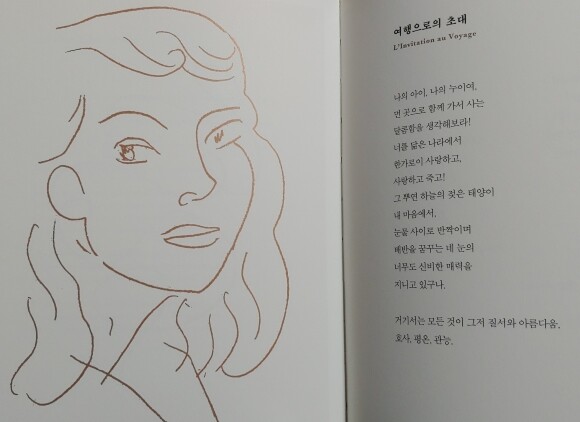 여행으로의 초대
L'Invitation au Voyage
나의 아이, 나의 누이여,
먼 곳으로 함께 가서 사는
달콤함을 생각해보라!
너를 닮은 나라에서
한가로이 사랑하고,
사랑하고 죽고!
그 뿌연 하늘의 젖은 태양이
내 마음에서,
눈물 사이로 반짝이며
배반을 꿈꾸는 네 눈의
너무도 신비한 매력을
지니고 있구나.
거기서는 모든 것이 그저 질서와 아름다움,
호사, 평온, 관능.